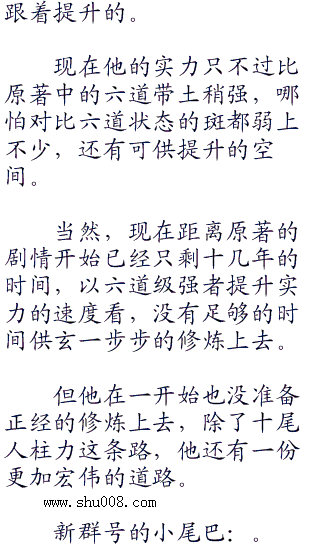 跟着提升的。
现在他的实力只不过比
原著中的六道带土稍强，哪
怕对比六道状态的斑都弱上
不少，还有可供提升的空
间。
当然，现在距离原著的
剧情开始已经只剩十几年的
时间，以六道级强者提升实
力的速度看，没有足够的时
间供玄一步步的修炼上去。
但他在一开始也没准备
正经的修炼上去，除了十尾
人柱力这条路，他还有一份
更加宏伟的道路。
www.shu008.com
新群号的小尾巴：。